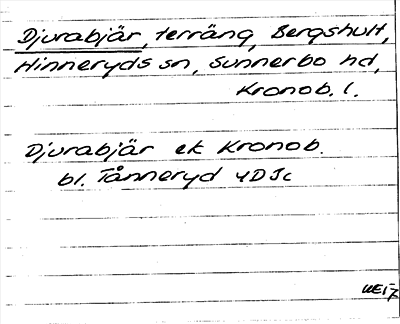 Djurabjär, terräng, Bergshult,
Hinneryds sn, Sunnerbo hd,
Kronob. l.
Djurabjär ek Kronob.
bl. Tånneryd 4D5c